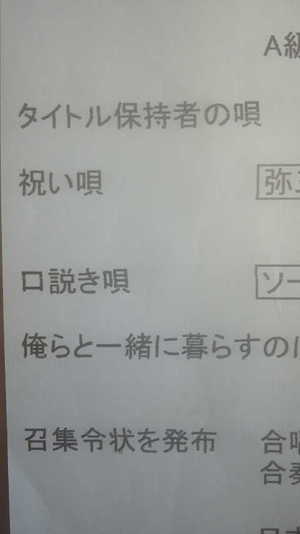 A級
タイトル保持者の唄
祝い唄 弥
口説き唄 ソー
俺らと一緒に暮らすの
召集令状を発布 合唱
合奏